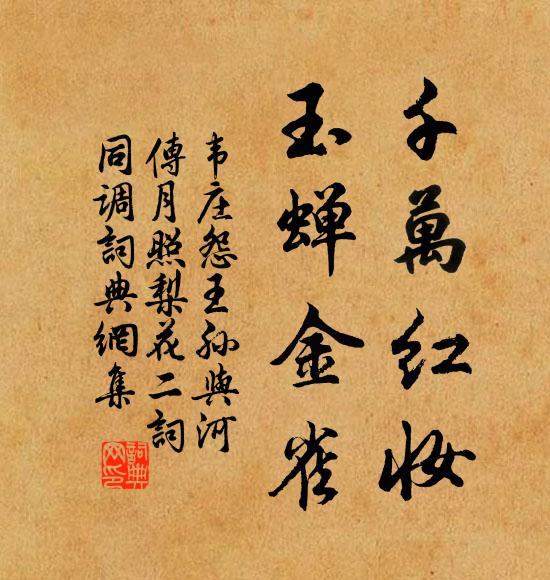 千萬红妆
玉蝉金雀
韦庄怨王孙與河
傳月照梨花二詞
同调詞典網集
詞典
网印